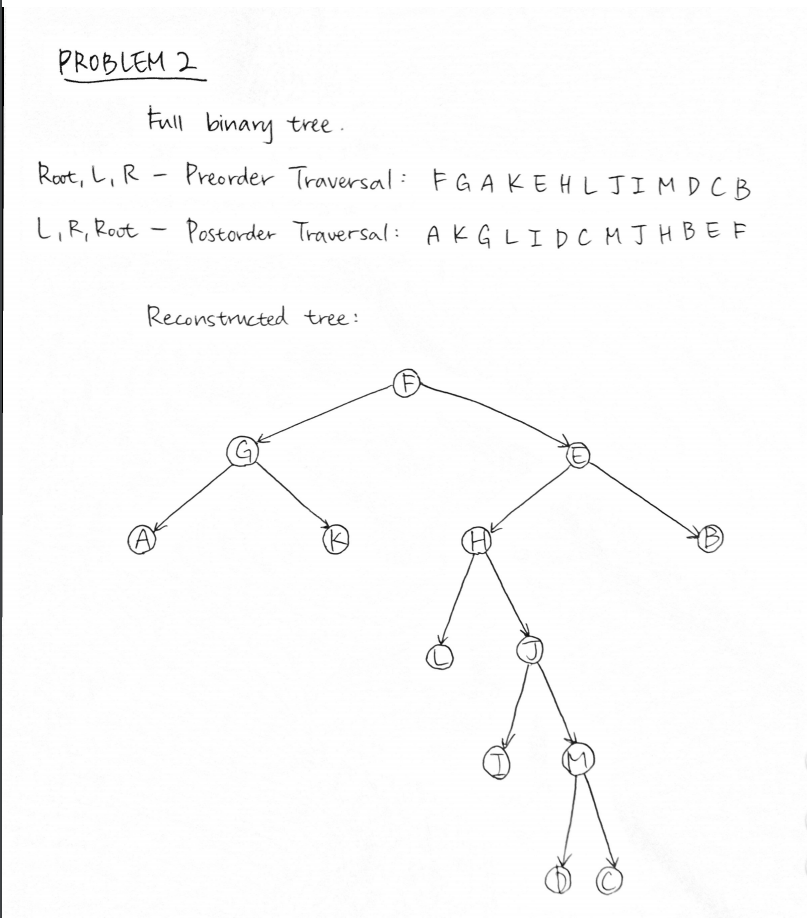 PROBLEM 2
Full binary tree.
Root, L, R - Preorder Traversal: F G A K E H L J I M D C B
L, R, Root - Postorder Traversal: A K G L I D C M J H B E F
Reconstructed tree:
F
G E
A K H B
L J
I M
D C